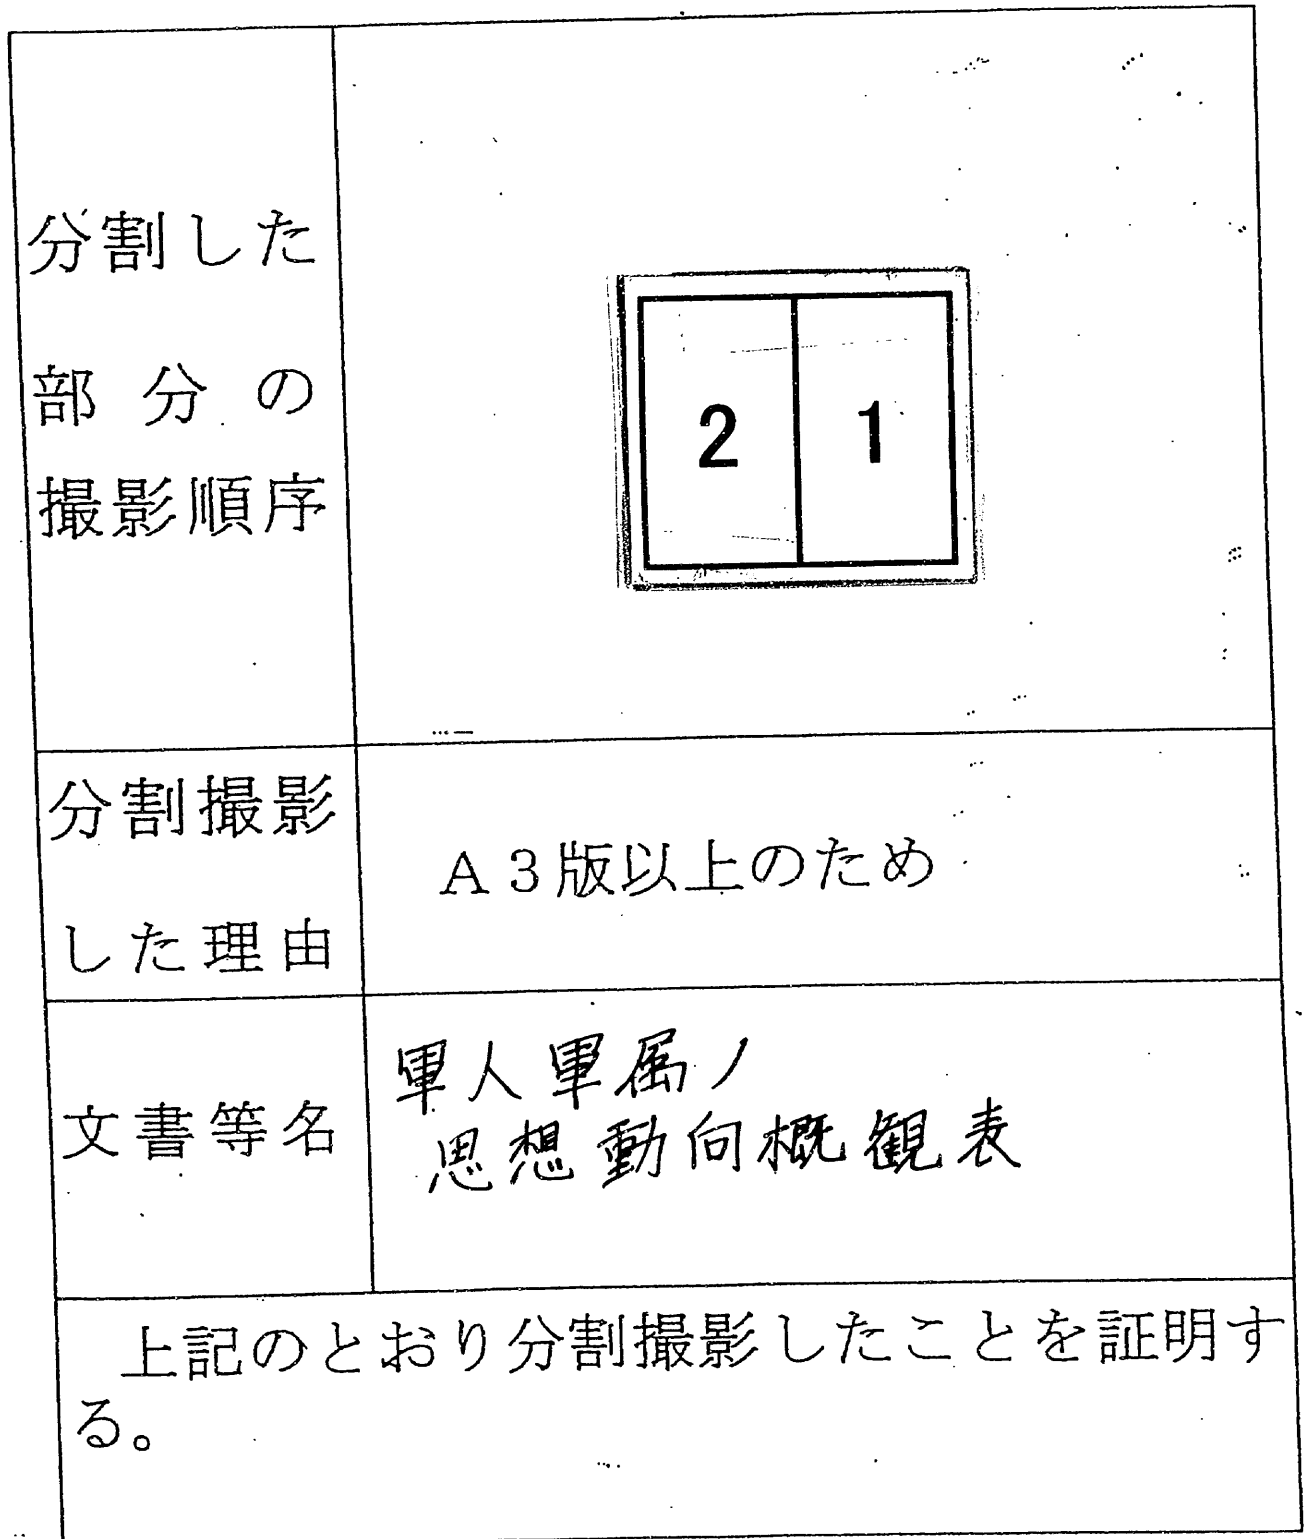 分割した
部分の
撮影順序
2 1
分割撮影
した理由
A3版以上のため
文書等名
軍人軍属ノ
思想動向概観表
上記のとおり分割撮影したことを証明す
る。